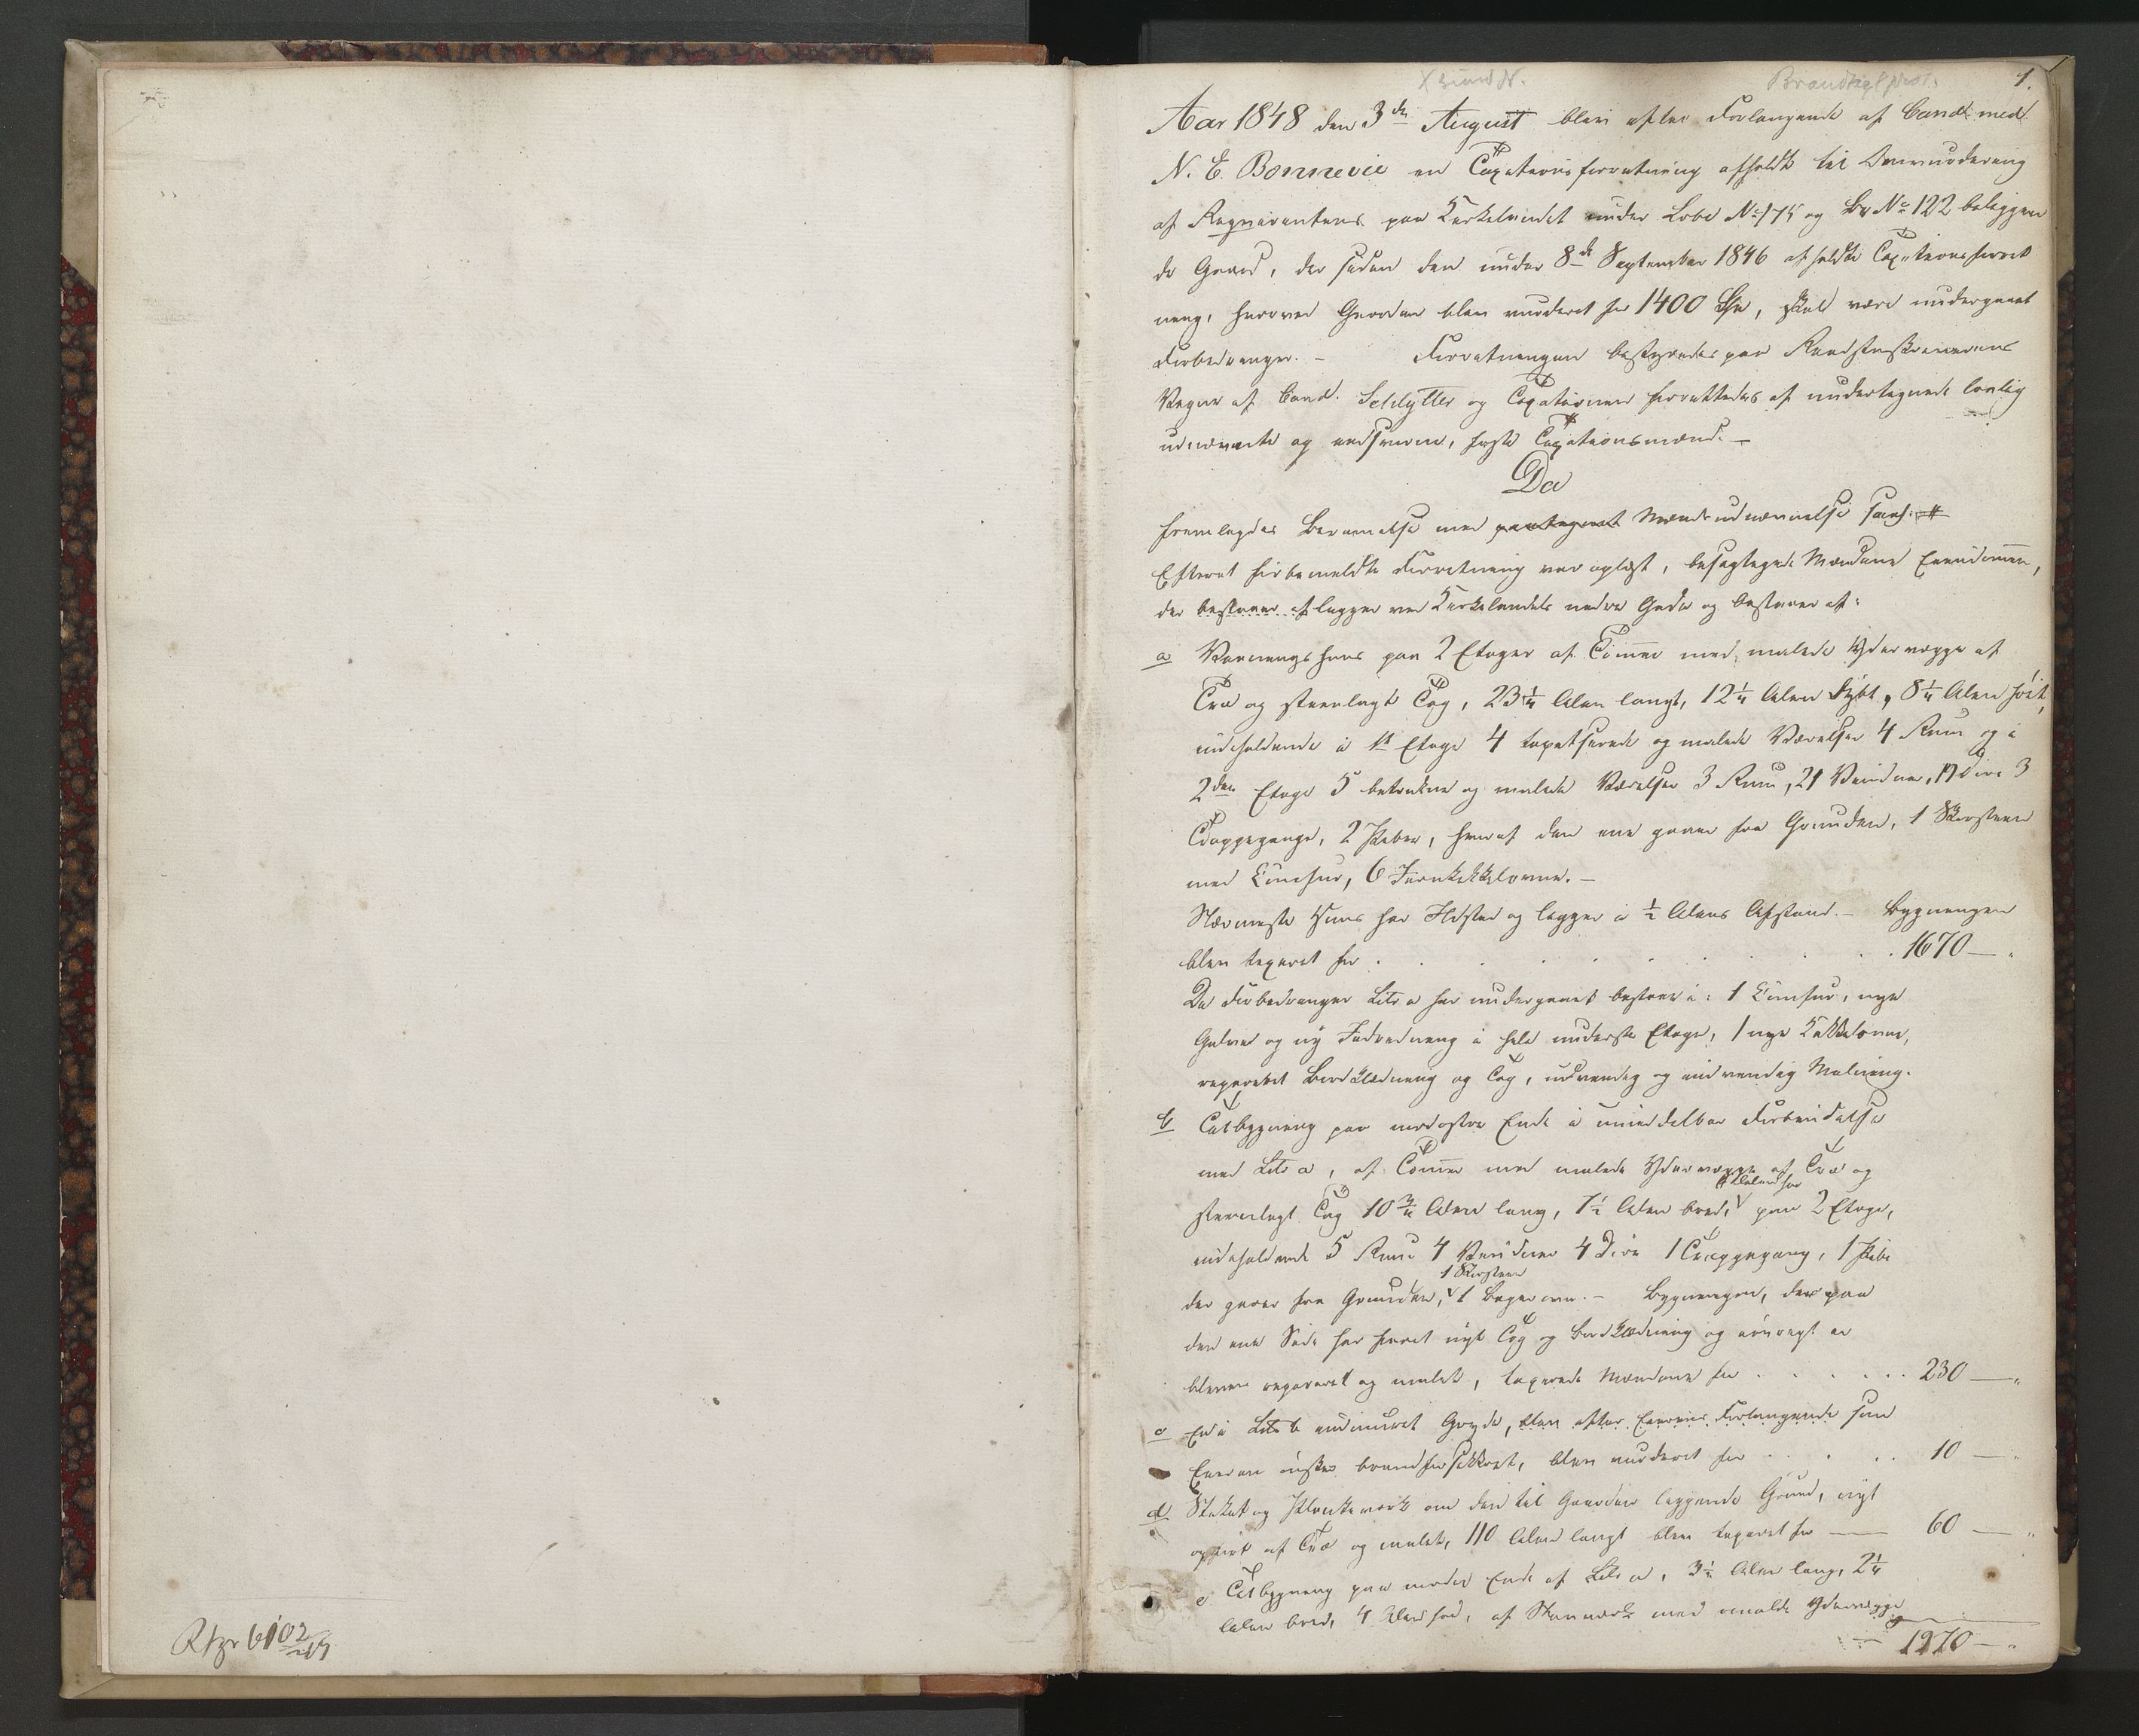 Xsund N.
Brandtaxt prot.
1.
Aar 1848 den 3die August blev efter Forlangende af Cand. med.
N. E. Bonnevie en Taxationsforretning afholdt til Omvurdering
af Reqvirentens paa Kirkelandet under Lobe No 175 og Br No 122 beliggen
de Gaard, der siden den under 8de September 1846 afholdte Taxationsforret
ning, hvorved Gaarden blev vurderet for 1400 Spd, skal være undergaaet
Forbedringer. – Forretningen bestyredes paa Raadstueskriverens
Vegne af Cand. Schlytter og Taxationen forrettedes af undertegnede lovlig
udnævnte og eedsvorne, faste Taxationsmænd. –
Da
fremlagdes Berammelse med paategnet Mænds udnævnelse
Efterat forbemeldte Forretning var oplæst, besigtigede Mændene Eiendommen,
der bestaaer af ligger ved Kirkelandets nedre Gade og bestaaer af:
a Vaaningshuus paa 2 Etager af Tømmer med malede Ydervægge af
Træ og steenlagt Tag, 23 1/4 Alen langt, 12 1/4 Alen dybt, 8 1/4 Alen høit,
indeholdende i 1st Etage 4 tapetserede og malede Værelser 4 Rum og i
2den Etage 5 betrukne og malede Værelser 3 Rum, 21 Vinduer, 19 Døre 3
Trappegange, 2 Piber, hvoraf den ene gaaer fra Grunden, 1 Skorsteen
med Komfur, 6 Jernkakkelovne. –
Nærmeste Huus har Ildsted og ligger i 1/2 Alens Afstand. – Bygningen
blev taxeret for . . . . . . . . . . 1670 – "
De Forbedringer Litr a har undergaaet bestaar i: 1 Komfur, nye
Gulve og ny Indredning i hele underste Etage, 1 nye Kakkelovne,
repareret Bordklædning og Tag, udvendig og indvendig Maling.
b Tilbygning paa nordostre Ende i umiddelbar Forbindelse
med Litr a, af Tømmer med malede Ydervægge af Træ og
steenlagt Tag 10 3/4 Alen lang, 7 1/2 Alen bred, paa 2 Etage,
indeholdende 5 Rum 4 Vinduer 4 Døre 1 Trappegang, 1 Pibe
1 Skorsteen
der gaaer fra Grunden, 1 Bagerovn. – Bygningen, der paa
den ene Side har faaet nyt Tag og Bordklædning og iøvrigt er
bleven repareret og malet, taxerede Mændene for . . . . . . 230 – "
c En i Litr b indmuret Gryde, blev efter Eierens Forlangende som
Eieren ønsker brandforsikkret, blev vurderet for . . . . . 10 – "
d Stakit og Plankeværk om den til Gaarden liggende Grund, nyt
opført af Træ og malet, 110 Alen langt blev taxeret for – 60 – "
e Tilbygning paa nordre Ende af Litr a, 3 1/2 Alen lang, 2 1/4
Alen bred, 4 Alen høi, af Steenværk med malede Ydervægge
1970 – "